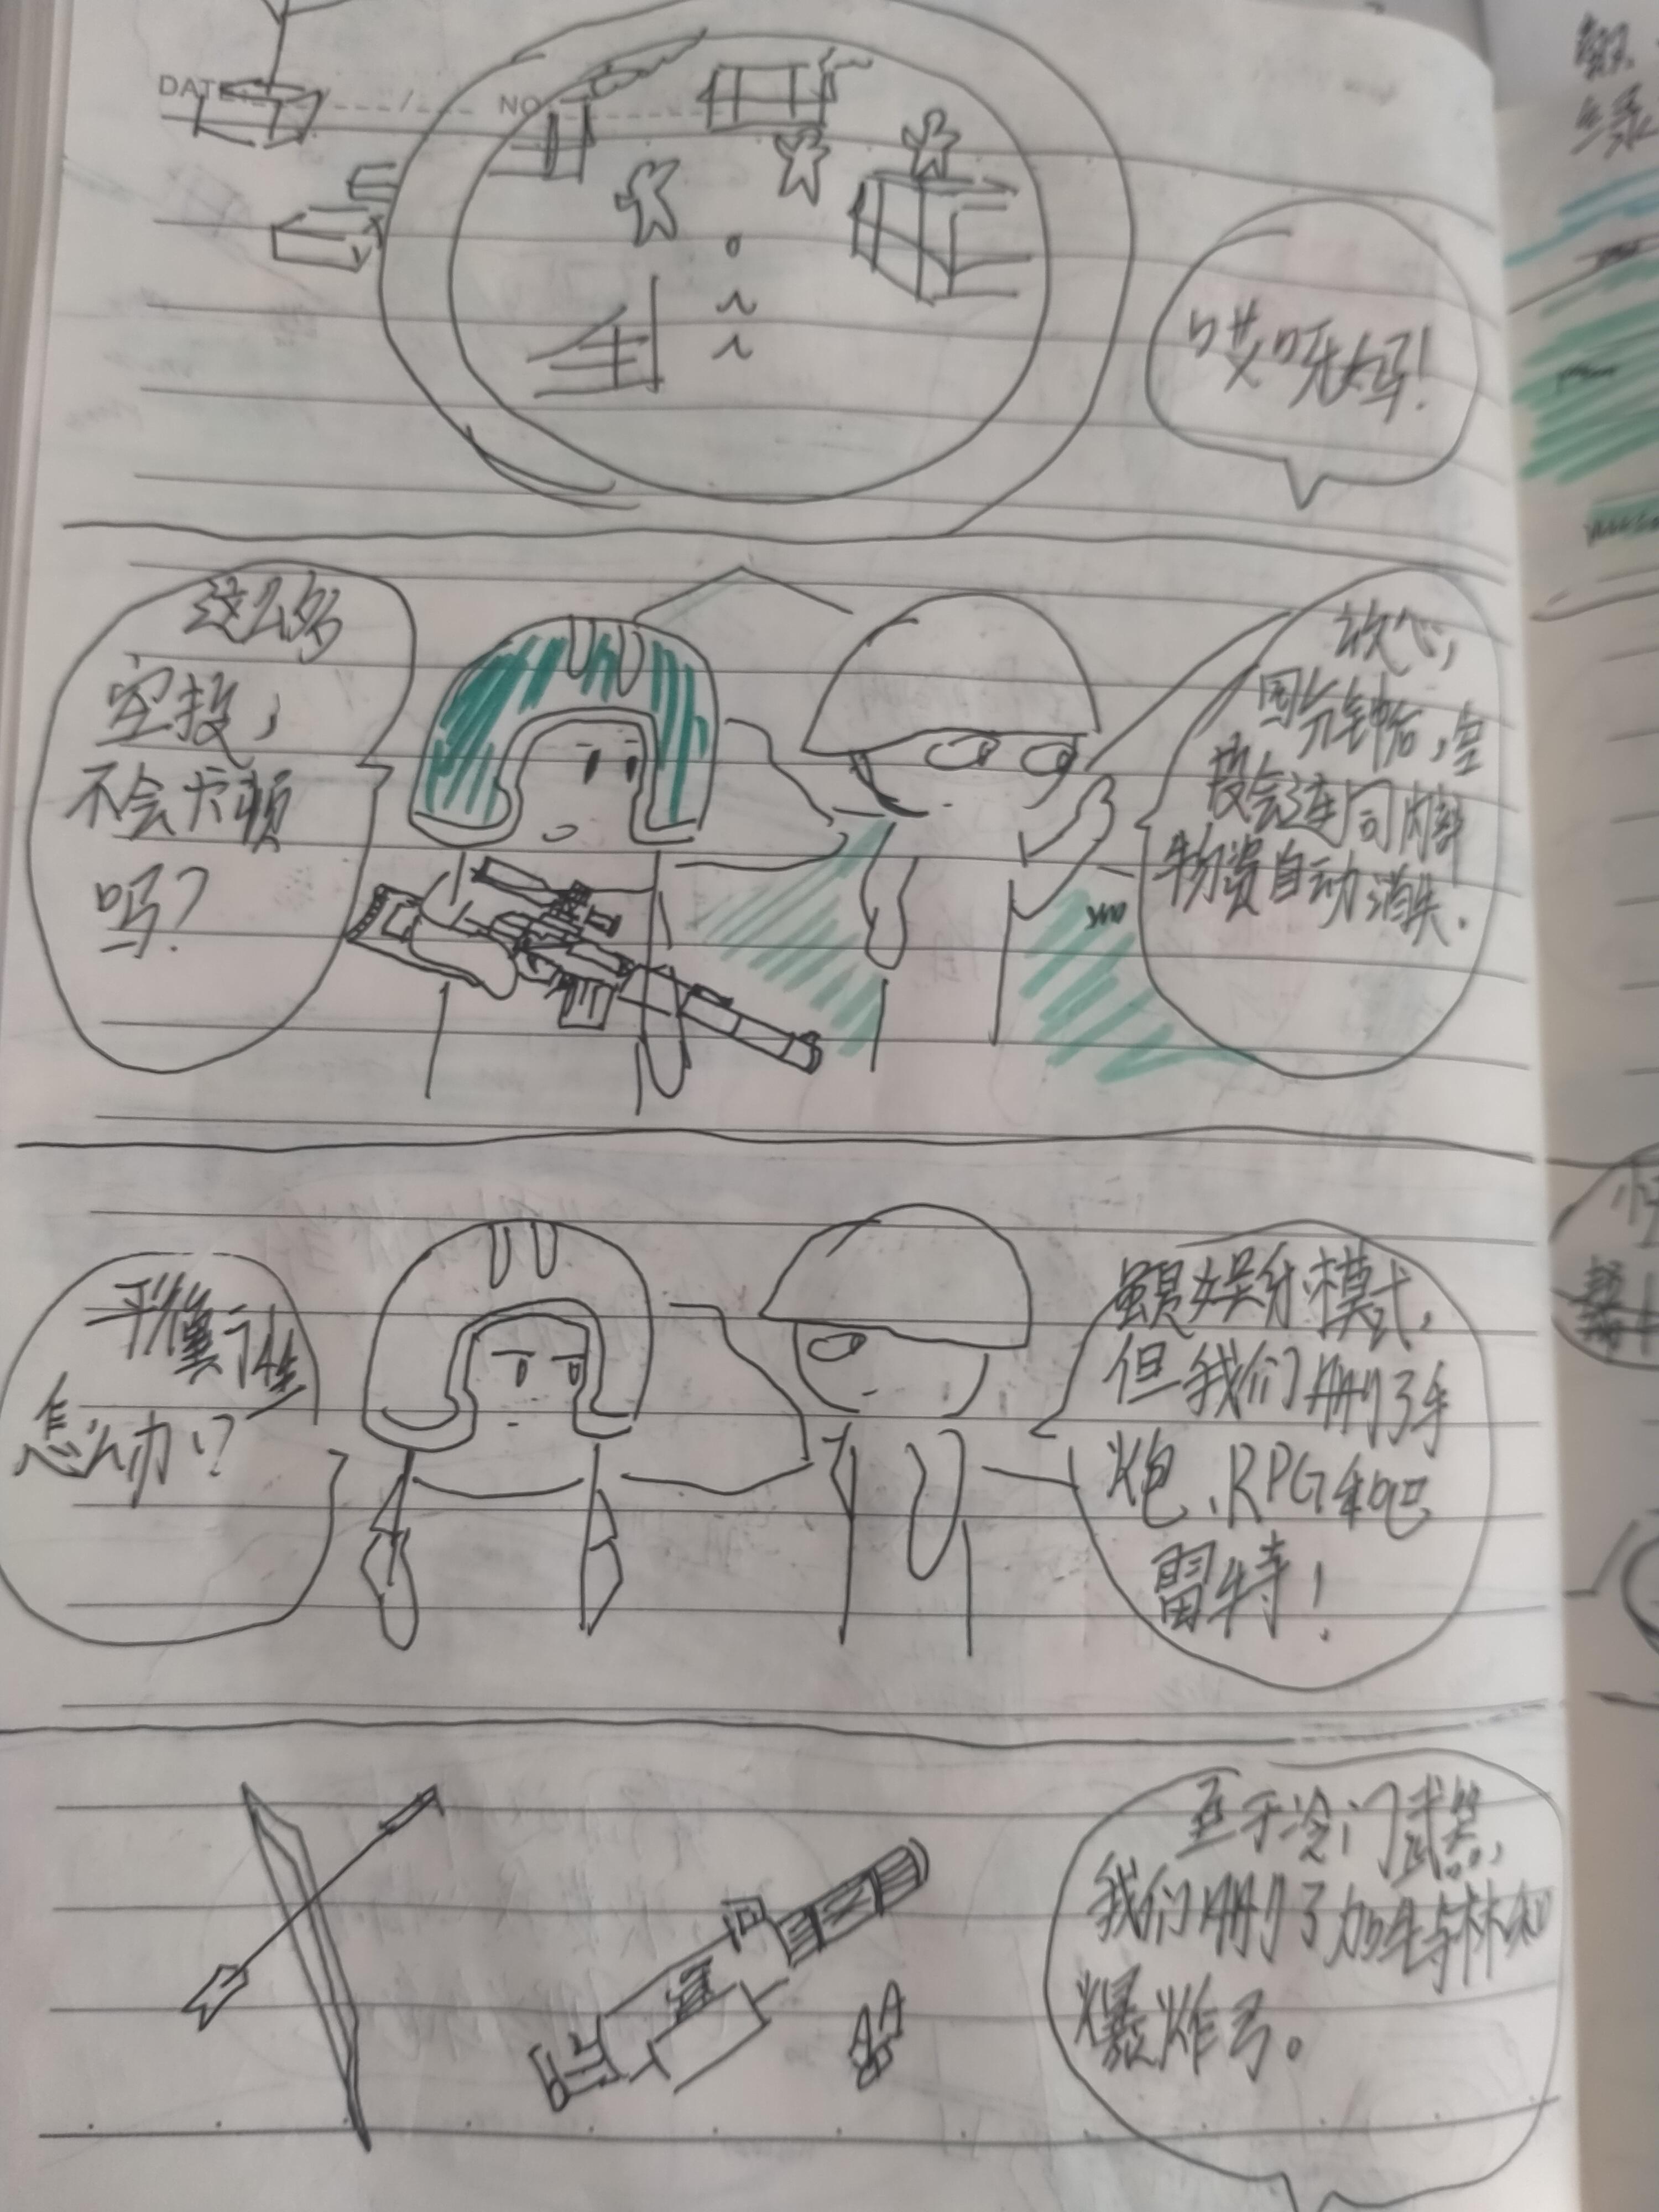 DATE: / NO.
哎呀妈!
这么多
空投,
不会卡顿
吗?
放心,
四分钟后,空
投会连同内部
物资自动消失.
平衡性
怎么办!?
虽是娱乐模式,
但我们删了手
炮、RPG和巴
雷特!
至于冷门武器,
我们删了加特林和
爆炸弓。